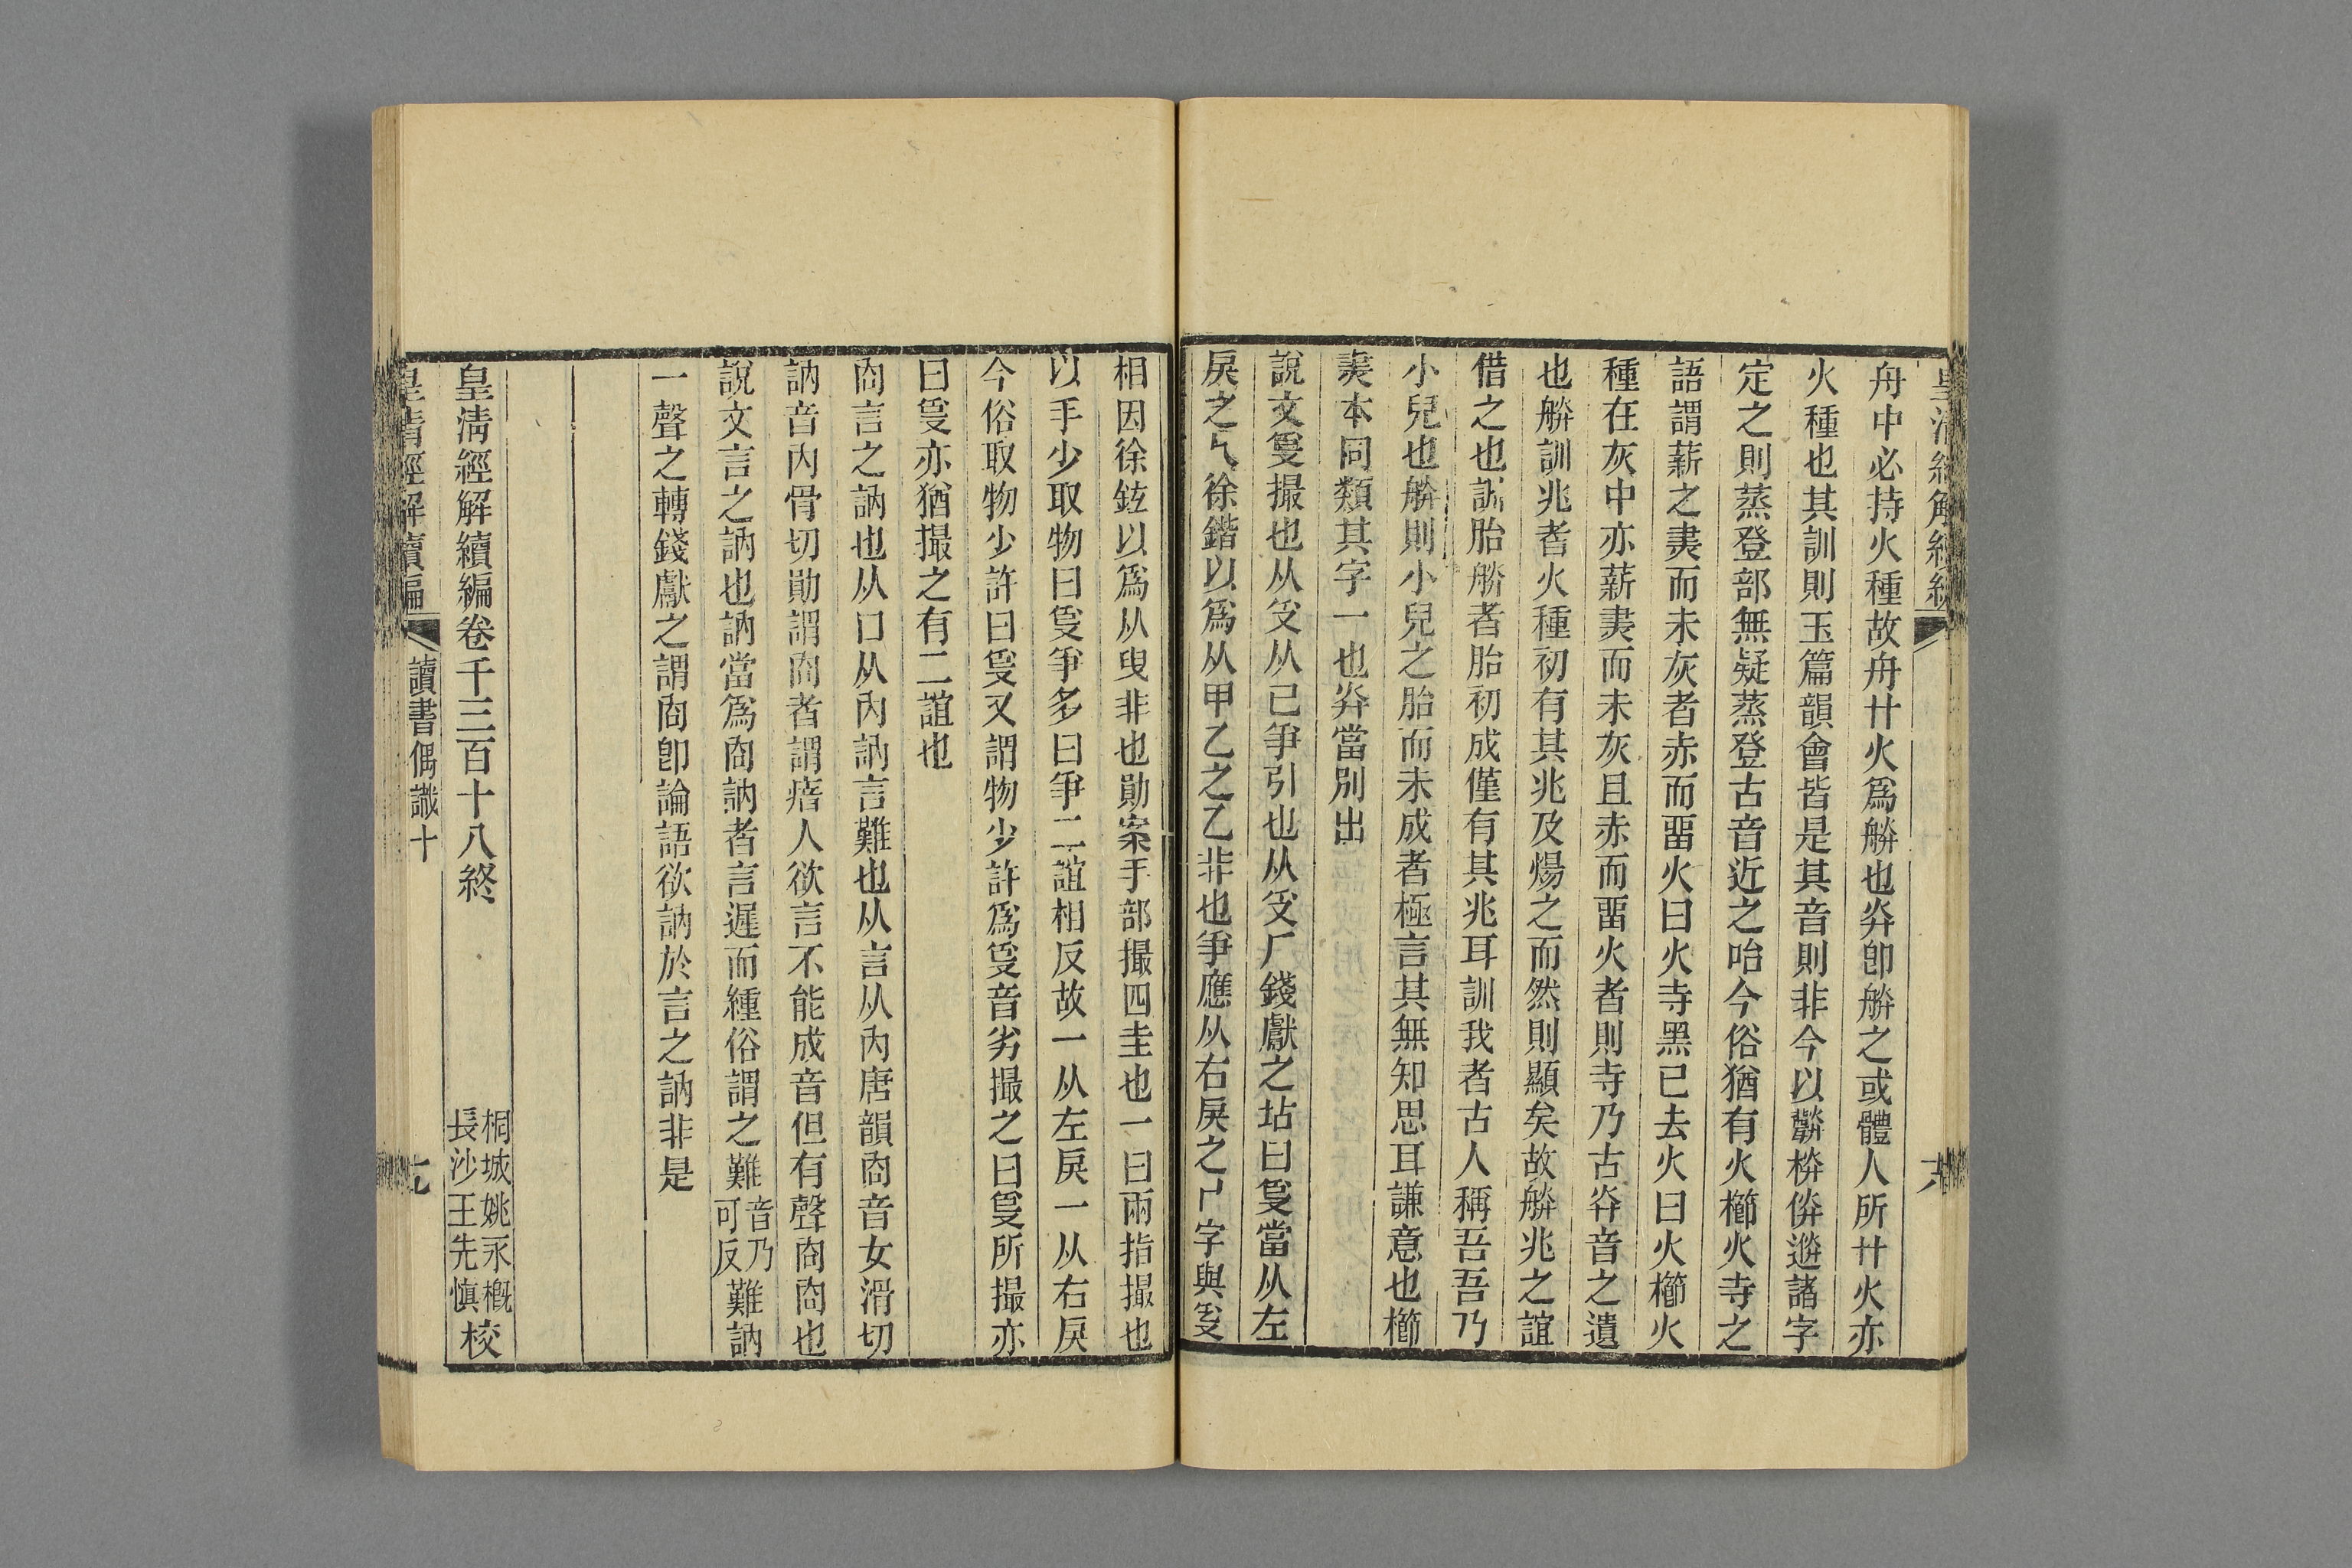 舟中必持火種故舟廾火爲䑞也灷卽䑞之或體人所廾火亦
火種也其訓則玉篇韻會皆是其音則非今以𣤱栚㑞遴諸字
定之則蒸登部無疑蒸登古音近之咍今俗猶有火櫛火寺之
語謂薪之㶳而未灰者赤而畱火曰火寺黑已去火曰火櫛火
種在灰中亦薪㶳而未灰且赤而畱火者則寺乃古灷音之遺
也䑞訓兆者火種初有其兆及煬之而然則顯矣故䑞兆之誼
借之也訓胎䑞者胎初成僅有其兆耳訓我者古人稱吾吾乃
小兒也䑞則小兒之胎而未成者極言其無知思耳謙意也櫛
㶳本同類其字一也灷當別出
說文㕟撮也从𠬪从已爭引也从𠬪𠂆錢獻之坫曰㕟當从左
戾之乁徐鍇以爲从甲乙之乙非也爭應从右戾之𠂆字與㕟
相因徐鉉以爲从𠬛非也勛案手部撮四圭也一曰兩指撮也
以手少取物曰㕟爭多曰爭二誼相反故一从左戾一从右戾
今俗取物少許曰㕟又謂物少許爲㕟音劣撮之曰㕟所撮亦
曰㕟亦猶撮之有二誼也
㕯言之訥也从口从內訥言難也从言从內唐韻㕯音女滑切
訥音內骨切勛謂㕯者謂瘖人欲言不能成音但有聲㕯㕯也
說文言之訥也訥當爲㕯訥者言遲而緟俗謂之難音乃可反難訥
一聲之轉錢獻之謂㕯卽論語欲訥於言之訥非是
皇淸經解續編卷千三百十八終
桐城姚永概
長沙王先愼校
皇淸經解續編
讀書偶識十